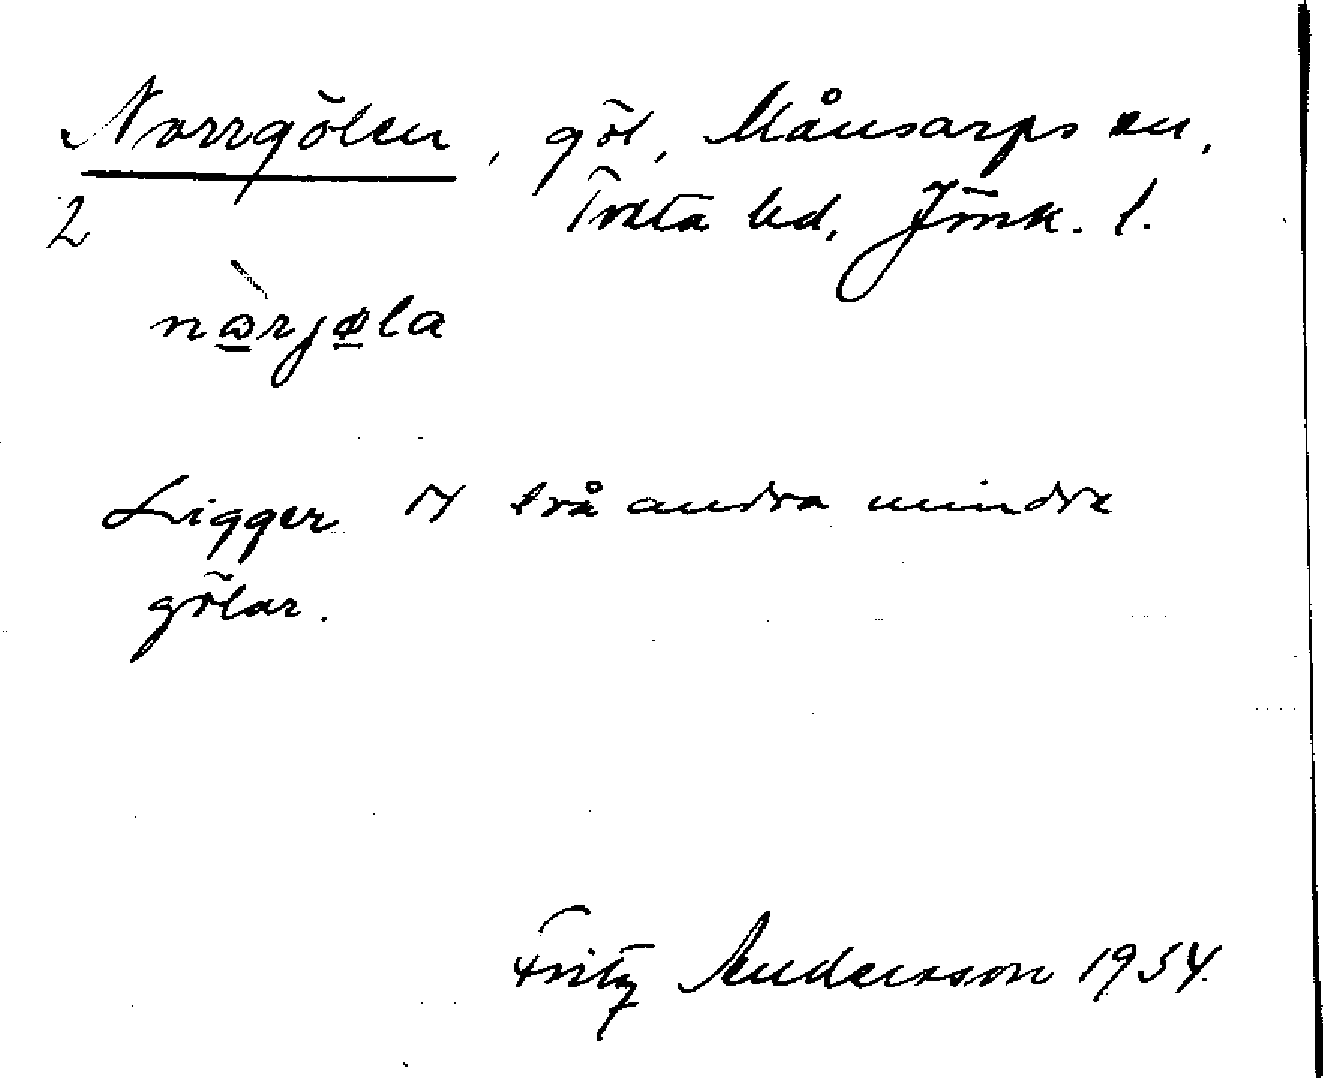 Norrgölen, göl, Månsarps sn,
2 Tveta hd, Jönk. l.
nɔ̀rjøla
Ligger N två andra mindre
gölar.
Fritz Andersson 1954.